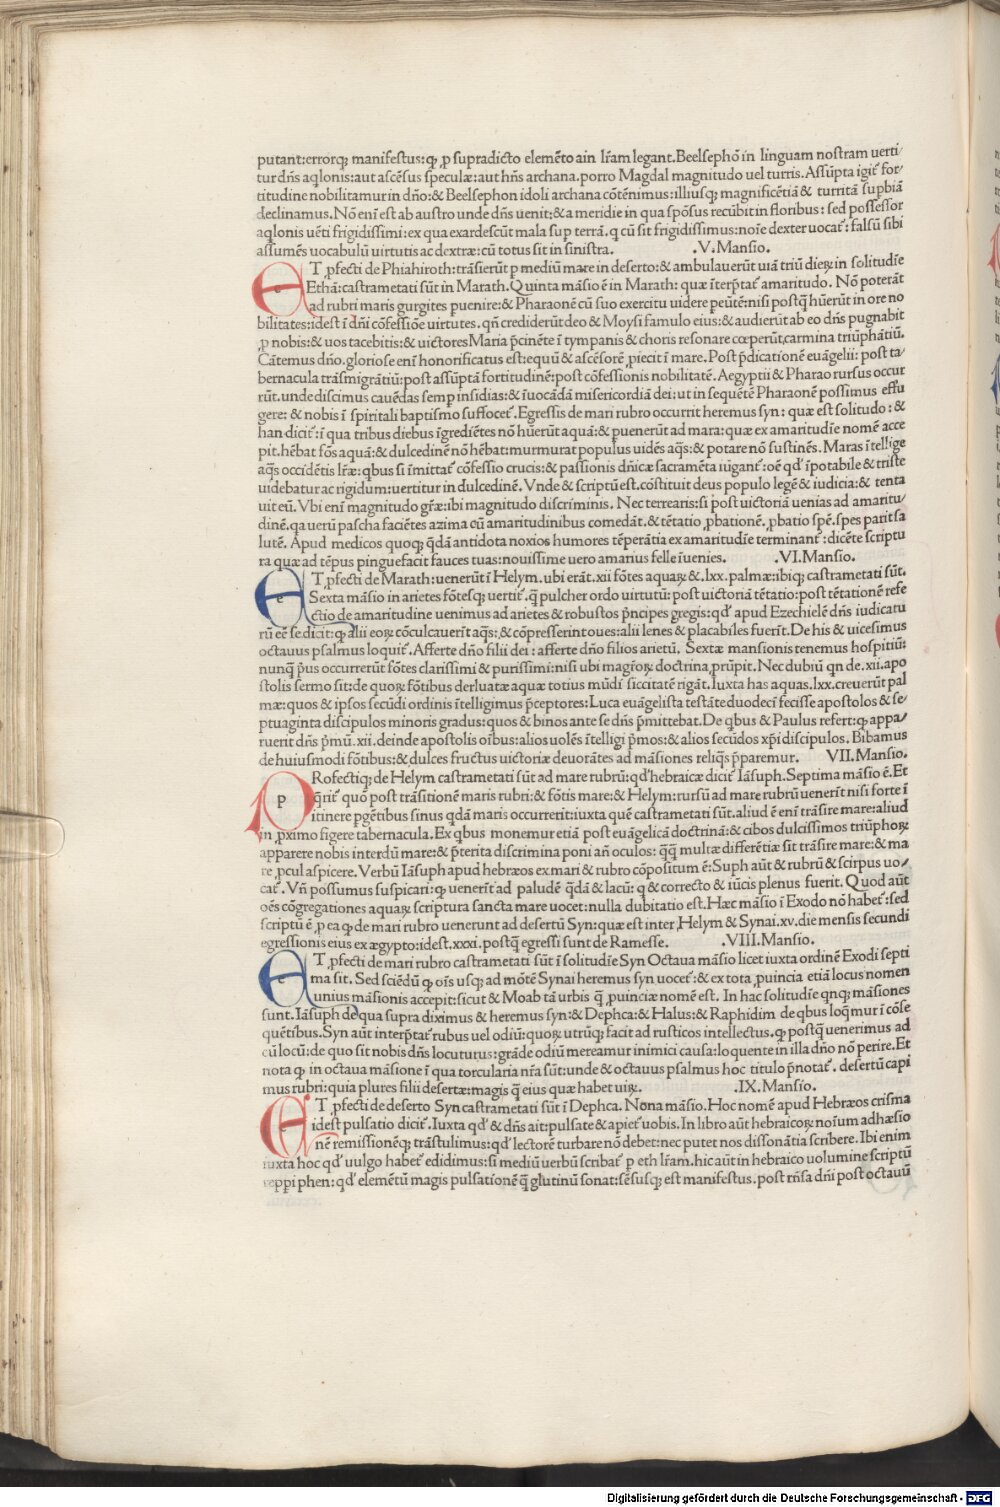 putant:errorq; manifestus:ꝙ ꝓ supradicto elemēto ain lr̄am legant.Beelsephō in linguam nostram uerti/
tur dn̄s aq̇lonis:aut ascēsus speculæ:aut hn̄s archana.porro Magdal magnitudo uel turris.Assūpta igit̄ for/
titudine nobilitamur in dn̄o:& Beelsephon idoli archana cōtēnimus:illiusq; magnificētiā & turritā supbiā
declinamus.Nō enī est ab austro unde dn̄s uenit:& a meridie in qua spōsus recūbit in floribus: sed possessor
aq̇lonis uēti frigidissimi:ex qua exardescūt mala sup terrā.q cū sit frigidissimus:noīe dexter uocat̄: falsū sibi
assumēs uocabulū uirtutis ac dextræ:cū totus sit in sinistra. .V.Mansio.
e T ꝓfecti de Phiahiroth:trāsierūt p mediū mare in deserto:& ambulauerūt uiā triū dieꝝ in solitudīe
Ethā:castrametati sūt in Marath.Quinta māsio ē in Marath: quæ īterp̄tat̄ amaritudo. Nō poterāt
ad rubri maris gurgites puenire:& Pharaonē cū suo exercitu uidere peūtē:nisi postq̄ hūerūt in ore no
bilitates:idest ī dn̄i cōfessiōe uirtutes. qn̄ crediderūt deo & Moysi famulo eius:& audierūt ab eo dn̄s pugnabit
ꝓ nobis:& uos tacebitis:& uictores Maria p̄cinēte ī tympanis & choris resonare cœperūt,carmina triūphātiū.
Cātemus dn̄o.gloriose enī honorificatus est:equū & ascēsorē ꝓiecit ī mare.Post p̄dicationē euāgelii: post ta/
bernacula trāsmigrātiū:post assūptā fortitudinē:post cōfessionis nobilitatē. Aegyptii & Pharao rursus occur
rūt.unde discimus cauēdas semp insidias:& īuocādā misericordiā dei:ut in sequētē Pharaonē possimus effu
gere: & nobis ī spiritali baptismo suffocet̄.Egressis de mari rubro occurrit heremus syn: quæ est solitudo: &
han dicit̄:ī qua tribus diebus īgrediētes nō hūerūt aquā:& puenerūt ad mara:quæ ex amaritudīe nomē acce
pit.hēbat fōs aquā:& dulcedinē nō hēbat:murmurat populus uidēs aq̄s:& potare nō sustinēs. Maras ītellige
aq̄s occidētis lr̄æ:qbus si īmittat̄ cōfessio crucis:& passionis dn̄icæ sacramēta iūgant̄:oē qd' īpotabile & triste
uidebatur ac rigidum:uertitur in dulcedinē. Vnde & scriptū est.cōstituit deus populo legē & iudicia:& tenta
uit eū. Vbi enī magnitudo gr̄æ:ibi magnitudo discriminis. Nec terrearis:si post uictoriā uenias ad amaritu/
dinē.qa uerū pascha faciētes azima cū amaritudinibus comedāt.& tētatio ꝓbationē.ꝓbatio spē.spes parit sa
lutē. Apud medicos quoq; q̄dā antidota noxios humores tēperātia ex amaritudīe terminant̄: dicēte scriptu
ra quæ ad tēpus pinguefacit fauces tuas:nouissime uero amarius felle īuenies. .VI.Mansio.
e T ꝓfecti de Marath:uenerūt ī Helym.ubi erāt.xii fōtes aquaꝝ &.lxx.palmæ:ibiq; castrametati sūt.
Sexta māsio in arietes fōtesq; uertit̄.q̄ pulcher ordo uirtutū:post uictoriā tētatio:post tētationē refe
ctio de amaritudine uenimus ad arietes & robustos p̄ncipes gregis:qd' apud Ezechielē dn̄s iudicatu
rū eē se dicit:ꝙ alii eoꝝ cōculcauerīt aq̄s:,& cōpresserint oues:alii lenes & placabiles fuerīt.De his & uicesimus
octauus psalmus loquit̄.Afferte dn̄o filii dei : afferte dn̄o filios arietū. Sextæ mansionis tenemus hospitiū:
nunq̄ p̄us occurrerūt fōtes clarissimi & purissimi:nisi ubi magr̄oꝝ doctrina p̄rūpit. Nec dubiū qn de.xii.apo
stolis sermo sit:de quoꝝ fōtibus deriuatæ aquæ totius mūdi siccitatē rigāt.Iuxta has aquas.lxx.creuerūt pal
mæ:quos & ipsos secūdi ordinis ītelligimus p̄ceptores:Luca euāgelista testāte duodecī fecisse apostolos & se/
ptuaginta discipulos minoris gradus:quos & binos ante se dn̄s p̄mittebat.De qbus & Paulus refert:ꝙ appa/
ruerit dn̄s p̄mū.xii.deinde apostolis oībus:alios uolēs ītelligi p̄mos:& alios secūdos xp̄i discipulos. Bibamus
de huiusmodi fōtibus:& dulces fructus uictoriæ deuorātes ad māsiones reliq̄s p̄paremur. VII.Mansio.
p Rofectiq; de Helym castrametati sūt ad mare rubrū:qd' hebraicæ dicit̄ Iāsuph.Septima māsio ē.Et
q̄rit̄ quō post trāsitionē maris rubri:& fōtis mare:& Helym:rursū ad mare rubrū uenerīt nisi forte ī
itinere pgētibus sinus qdā maris occurrerit:iuxta quē castrametati sūt. aliud ē enī trāsire mare:aliud
in ꝓximo figere tabernacula.Ex qbus monemur etiā post euāgelicā doctrinā:& cibos dulcissimos triūphoꝝ
apparere nobis interdū mare:& p̄terita discrimina poni an̄ oculos: q̄q̄ multæ differētiæ sit trāsire mare:& ma
re ꝓcul aspicere. Verbū Iāsuph apud hebræos ex mari & rubro cōpositum ē:Suph aūt & rubrū & scirpus uo/
cat̄. Vn̄ possumus suspicari:ꝙ uenerīt ad paludē q̄dā & lacū: q & correcto & iūcis plenus fuerit. Quod aūt
oēs cōgregationes aquaꝝ scriptura sancta mare uocet:nulla dubitatio est.Hæc māsio ī Exodo nō habet̄:sed
scriptū ē ꝓ ea ꝙ de mari rubro uenerunt ad desertū Syn:quæ est inter Helym & Synai.xv.die mensis secundi
egressionis eius ex ægypto:idest.xxxi.postq̄ egressi sunt de Ramesse. .VIII.Mansio.
e T ꝓfecti de mari rubro castrametati sūt ī solitudīe Syn Octaua māsio licet iuxta ordinē Exodi septi
ma sit. Sed sciēdū ꝙ oīs usq; ad mōtē Synai heremus syn uocet̄:& ex tota ꝓuincia etiā locus nomen
unius māsionis accepit:sicut & Moab tā urbis q̄ ꝓuinciæ nomē est. In hac solitudīe qnq; māsiones
sunt.Iāsuph de qua supra diximus & heremus syn:& Dephca:& Halus:& Raphidim de qbus loq̄mur ī cōse
quētibus.Syn aūt interp̄tat̄ rubus uel odiū:quoꝝ utrūq; facit ad rusticos intellectus.ꝙ postq̄ uenerimus ad
cū locū:de quo sit nobis dn̄s locuturus:grāde odiū mereamur inimici causa:loquente in illa dn̄o nō perire.Et
nota ꝙ in octaua māsione ī qua torcularia nr̄a sūt:unde & octauus psalmus hoc titulo p̄notat̄. desertū capi
mus rubri:quia plures filii desertæ:magis q̄ eius quæ habet uiꝝ. .IX.Mansio.
e T ꝓfecti de deserto Syn castrametati sūt ī Dephca. Nona māsio. Hoc nomē apud Hebræos crisma
idest pulsatio dicit̄.Iuxta qd' & dn̄s ait:pulsate & apiet̄ uobis.In libro aūt hebraicoꝝ noīum adhæsio
nē remissionēq; trāstulimus:qd' lectorē turbare nō debet:nec putet nos dissonātia scribere. Ibi enim
iuxta hoc qd' uulgo habet̄ edidimus:si mediū uerbū scribat̄ p eth lr̄am.hic aūt in hebraico uolumine scriptū
reppi phen:qd' elemētū magis pulsationē q̄ glutinū sonat:sēsusq; est manifestus.post rn̄sa dn̄i post octauū
Digitalisierung gefördert durch die Deutsche Forschungsgemeinschaft - DFG